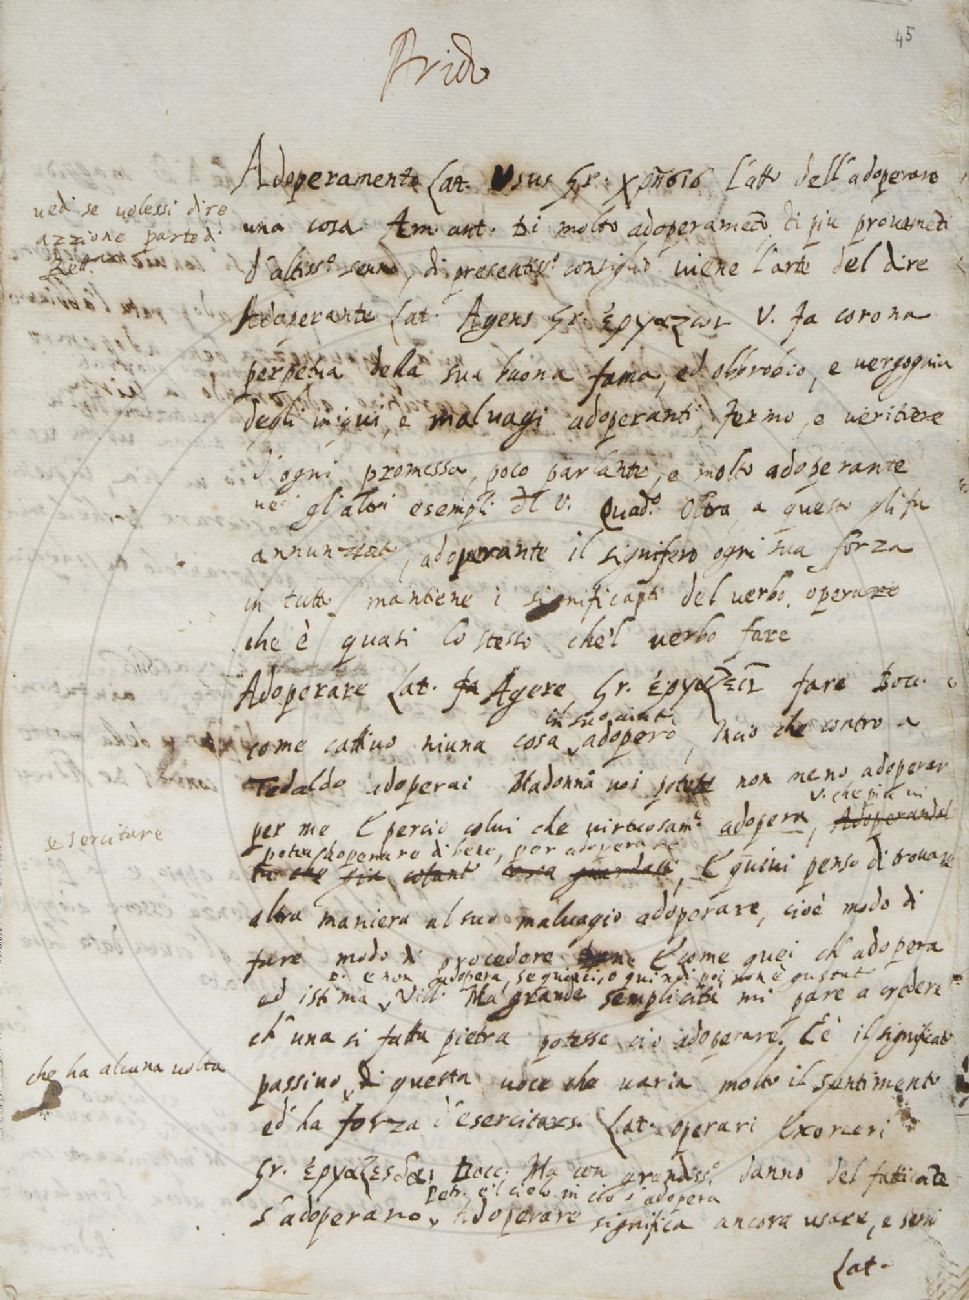 45
Adoperamento Lat. Usus Gr. χρῆσις L'atto dell'adoperare
vedi se volessi dire
azzione parte d.
una cosa Am. ant. Di molto adoperamēto, di più provedimēti
d'altiss.o senno, di presentiss.o consiglio viene l'arte del dire
Adoperante Lat. Agens Gr. ἐργαζων V. fa corona
perpetua della sua buona fama, ed obbrobrio, e vergogna
degli iniqui, e malvagi adoperanti, fermo, e veritiere
d'ogni promessa, poco parlante, e molto adoperante
ve' gl'altri esempli del V. Quad.o Oltra a questo gli fu
annunziato, adoperante il signifero ogni sua forza
in tutto mantiene i significati del verbo operare
che è quasi lo stesso che'l verbo fare
Adoperare Lat. Agere Gr. ἐργαζειν fare Bocc.
in suo aiuto
come cattivo niuna cosa adoperò, Inciò che contro a
Tedaldo adoperai Madonna voi potete non meno adoperar
V. che più vi
per me E perciò colui che virtuosam.e adopera, Adoperandol
esercitare
potea adoperare di bene, per adoperare
tu che già cotanto cosa guardasti, E quivi penso di trovare
altra maniera al suo malvagio adoperare, cioè modo di
fare modo di procedere E come quei ch'adopera
ed istima, Vill. Ma grande semplicità mi pare a credere
ch'una si fatta pietra potesse ciò adoperare, E è il significato
che ha alcuna volta
passivo, di questa voce che varia molto il sentimento
ed ha forza d'esercitarsi Lat. operari Exerceri
Gr. ἐργαζεσθαι Bocc. Ma con grandiss.o danno del faticante
Petr. e'l cielo in ciò s'adopera
s'adoperano, Adoperare significa ancora usare, e servi
Lat.